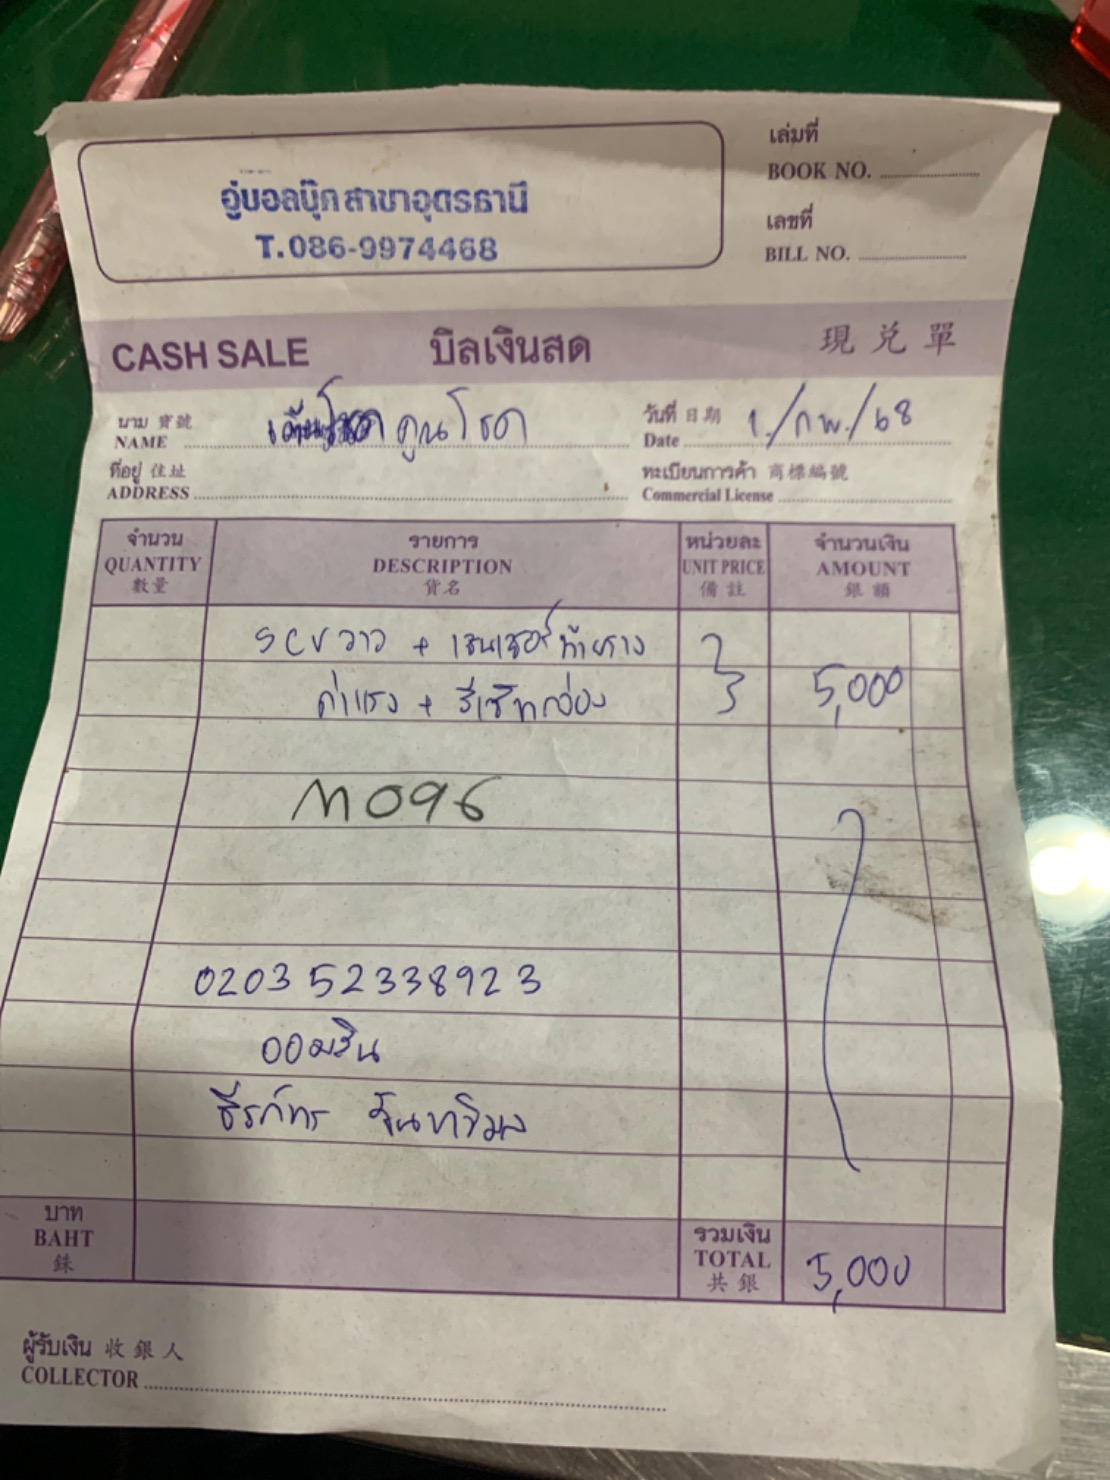 เล่มที่
BOOK NO.
อู่บอลบุ๊ค สาขาอุดรธานี
T.086-9974468
เลขที่
BILL NO.
CASH SALE บิลเงินสด 現兌單
นาม 寶號
NAME คูนโชค
วันที่ 日期
Date 1./กพ./68
ที่อยู่ 住址
ADDRESS
ทะเบียนการค้า 商標編號
Commercial License
จำนวน รายการ หน่วยละ จำนวนเงิน
QUANTITY DESCRIPTION UNIT PRICE AMOUNT
數量 貨名 備註 銀額
SCV วาว + เซนเซอร์ท้ายราง
ค่าแรง + รีเซ็ทกล่อง 5,000
M096
020352338923
ออมสิน
ธีรภัทร
บาท
BAHT
銖
รวมเงิน
TOTAL 5,000
共銀
ผู้รับเงิน 收銀人
COLLECTOR